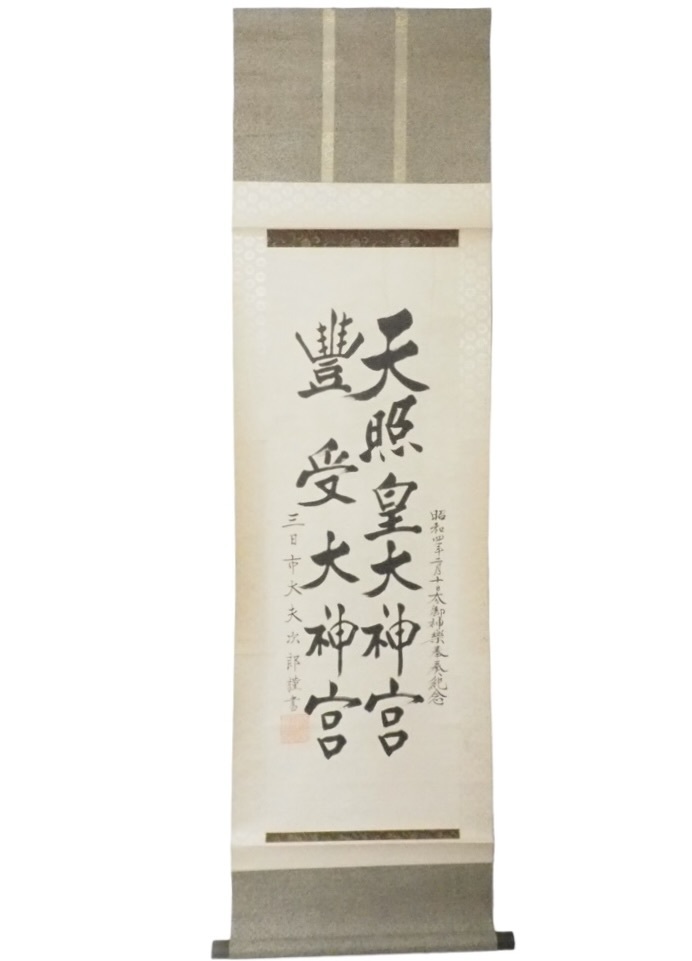 昭和四年二月十日太御神樂奉奏紀念
天照皇大神宮
豐受大神宮
三日市大夫次郎謹書